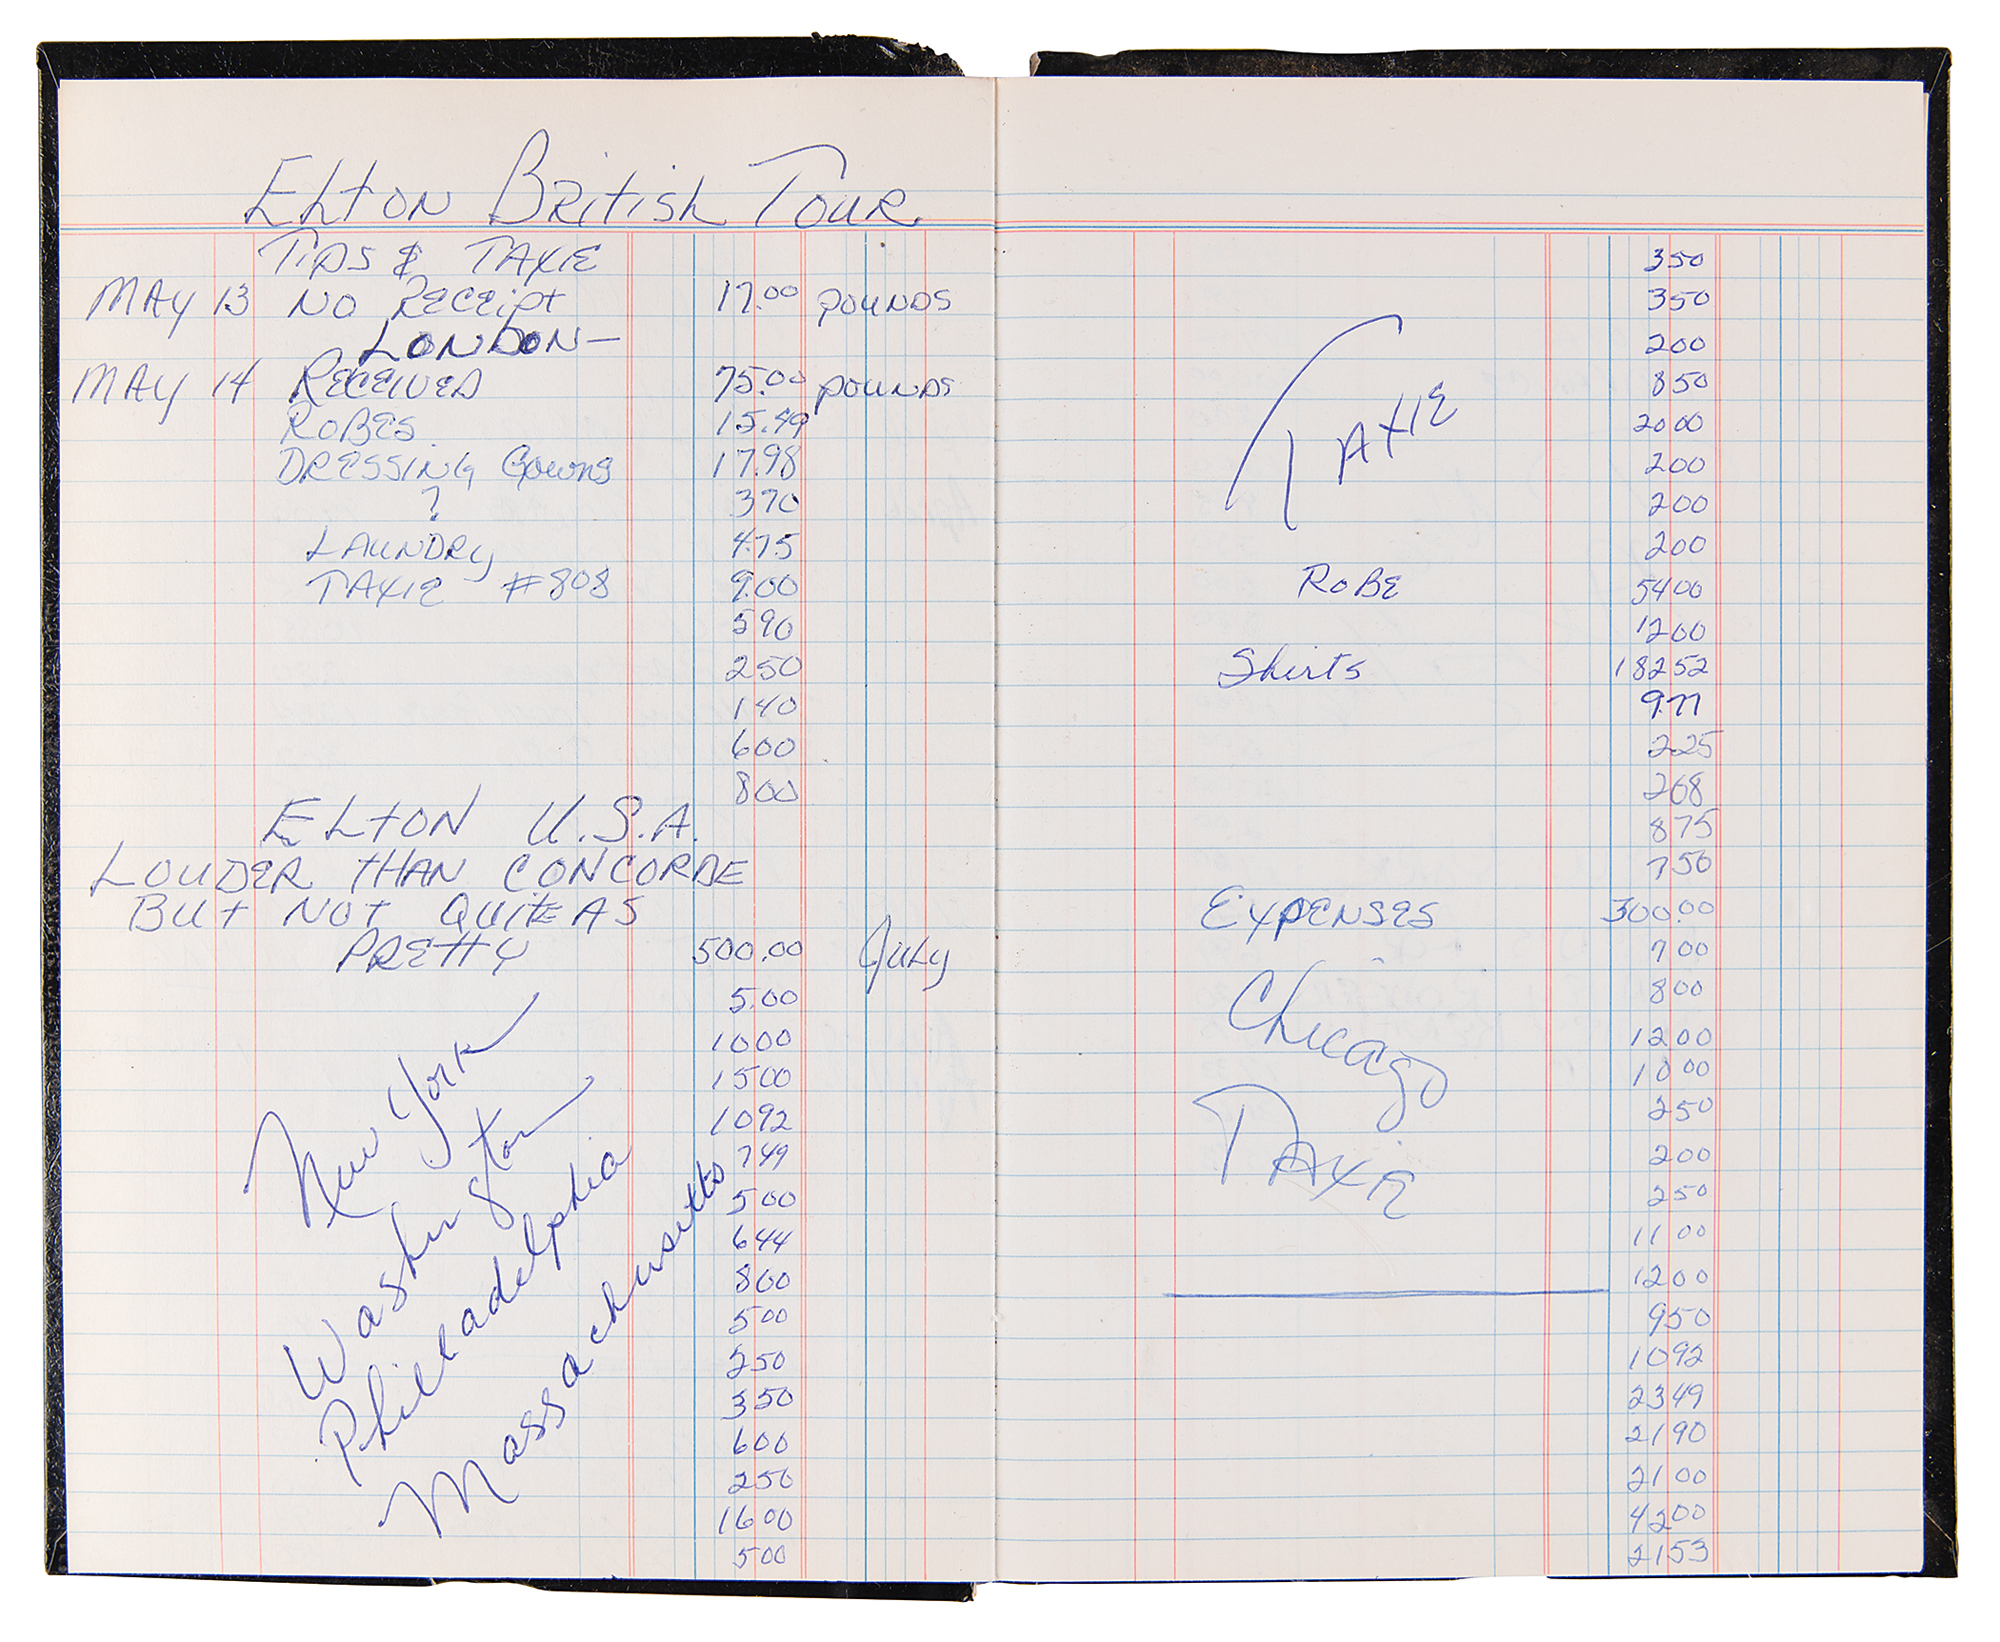 ELTON BRITISH TOUR.
TIPS & TAXIE
MAY 13 NO RECEIPT 17.00 POUNDS
LONDON—
MAY 14 RECEIVED 75.00 POUNDS
ROBES 15.49
DRESSING Gowns 17.98
? 370
LAUNDRY 4.75
TAXIE #808 9.00
590
250
140
600
800
ELTON U.S.A.
LOUDER THAN CONCORDE
BUT NOT QUITE AS
PRETTY 500.00 July
5.00
1000
1500
1092
749
500
644
800
500
250
350
600
250
1600
500
New York
Washington
Philladelphia
Massachusetts
350
350
200
850
2000
200
200
200
TAXIE
ROBE 5400
1200
Shirts 18252
9.77
225
268
875
750
EXPENSES 300.00
700
800
1200
1000
250
200
250
1100
1200
Chicago
TAXIE
950
1092
2349
2190
2100
4200
2153